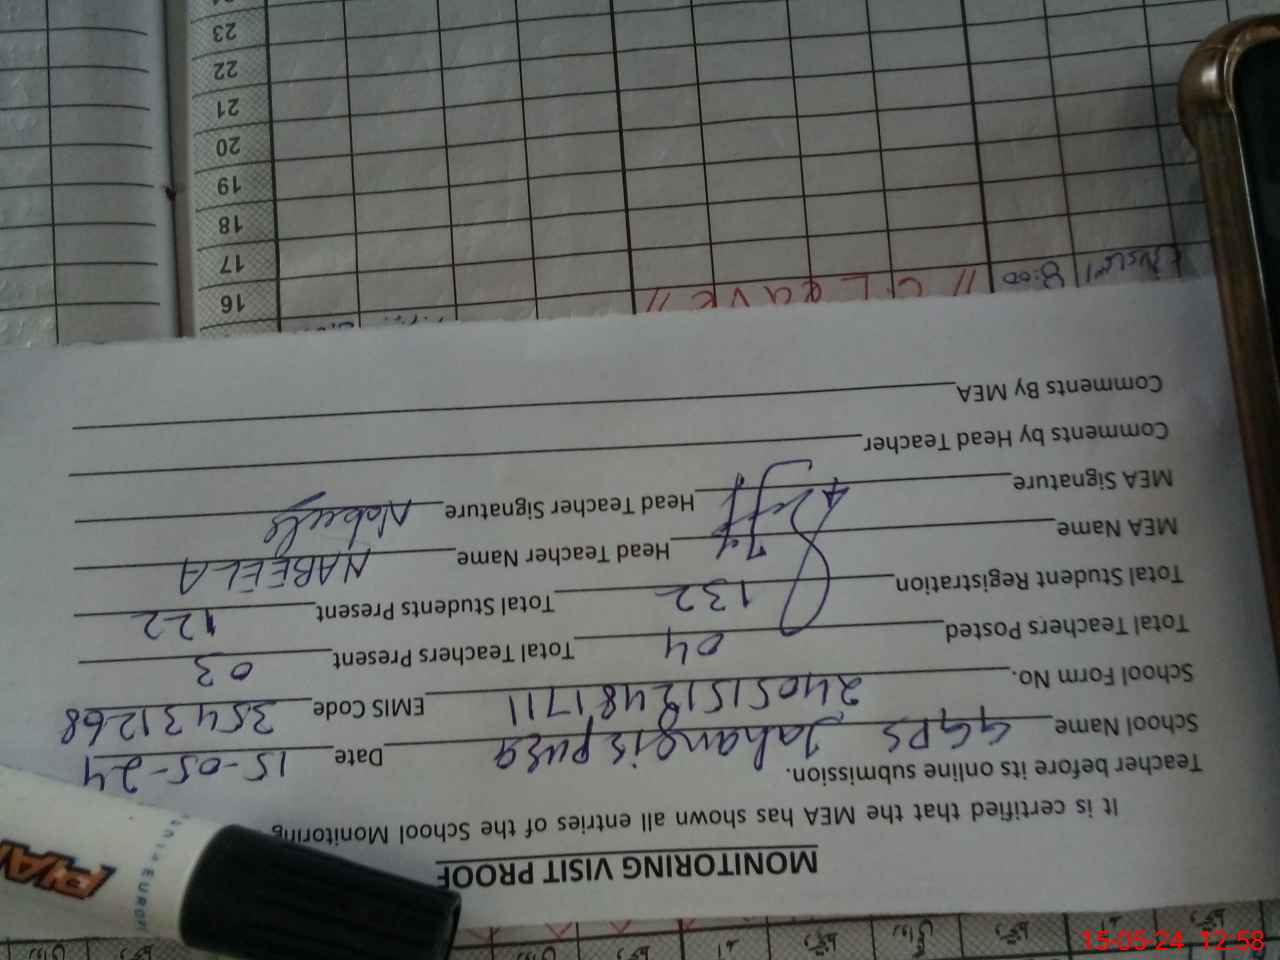 MONITORING VISIT PROOF
It is certified that the MEA has shown all entries of the School Monitoring
Teacher before its online submission.
School Name GGPS Jahangirpura Date 15-05-24
School Form No. 24051512481711 EMIS Code 35431268
Total Teachers Posted 04 Total Teachers Present 03
Total Student Registration 132 Total Students Present 122
MEA Name Head Teacher Name NABEELA
MEA Signature Head Teacher Signature Nabeela
Comments by Head Teacher
Comments By MEA
8:00 // C Leave //
16
17
18
19
20
21
22
23
15-05-24 12:58